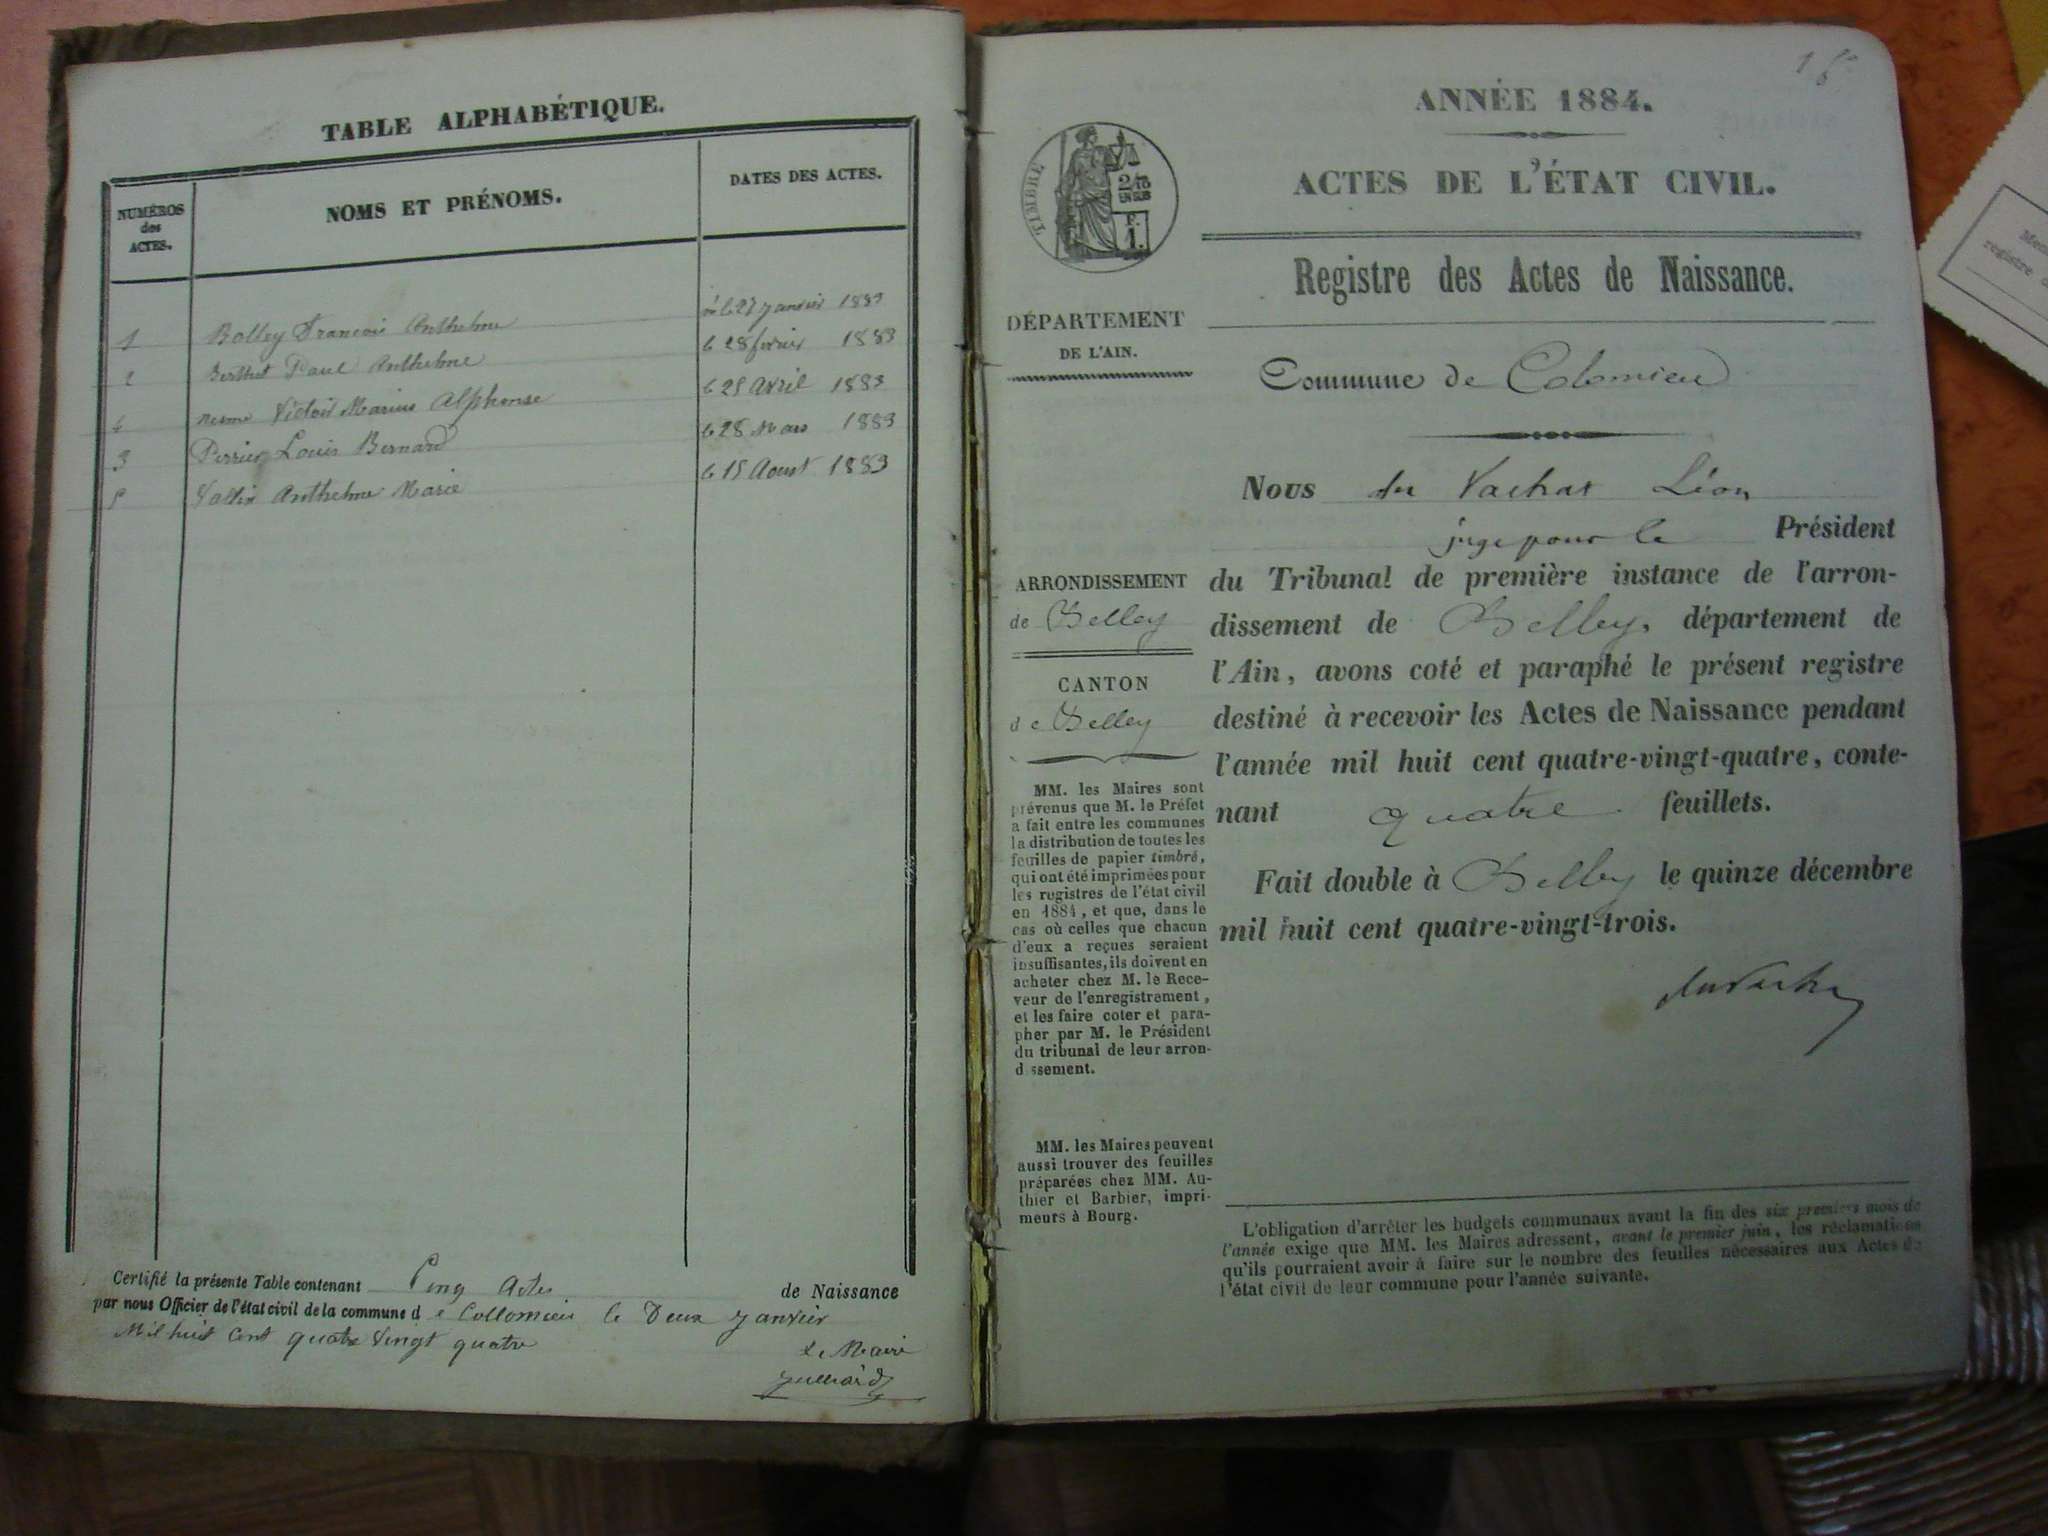 TABLE ALPHABÉTIQUE.
NUMÉROS des ACTES.
NOMS ET PRÉNOMS.
DATES DES ACTES.
1 Bolley François Anthelme le 27 janvier 1883
2 Berthet Paul Anthelme le 28 février 1883
4 nesme Victoir Marius Alphonse le 25 Avril 1883
3 Perrier Louis Bernard le 28 Mars 1883
5 Vallin Anthelme Marie le 15 Aoust 1883
Certifié la présente Table contenant Cinq Actes de Naissance
par nous Officier de l'état civil de la commune d e Collomieu le Deux janvier
Mil huit Cent quatre Vingt quatre
le Maire
Julliard
ANNÉE 1884.
ACTES DE L'ÉTAT CIVIL.
TIMBRE
2/10
EN SUS
F.
1.
Registre des Actes de Naissance.
DÉPARTEMENT
DE L'AIN.
Commune de Colomieu
Nous du Vachat Léon
juge pour le Président
du Tribunal de première instance de l'arron-
dissement de Belley, département de
l'Ain, avons coté et paraphé le présent registre
destiné à recevoir les Actes de Naissance pendant
l'année mil huit cent quatre-vingt-quatre, conte-
nant quatre feuillets.
Fait double à Belley le quinze décembre
mil huit cent quatre-vingt-trois.
du Vachat
ARRONDISSEMENT
de Belley
CANTON
de Belley
MM. les Maires sont
prévenus que M. le Préfet
a fait entre les communes
la distribution de toutes les
feuilles de papier timbré,
qui ont été imprimées pour
les registres de l'état civil
en 1884, et que, dans le
cas où celles que chacun
d'eux a reçues seraient
insuffisantes, ils doivent en
acheter chez M. le Rece-
veur de l'enregistrement,
et les faire coter et para-
pher par M. le Président
du tribunal de leur arron-
dissement.
MM. les Maires peuvent
aussi trouver des feuilles
préparées chez MM. Au-
thier et Barbier, impri-
meurs à Bourg.
L'obligation d'arrêter les budgets communaux avant la fin des six premiers mois de
l'année exige que MM. les Maires adressent, avant le premier juin, les réclamations
qu'ils pourraient avoir à faire sur le nombre des feuilles nécessaires aux Actes de
l'état civil de leur commune pour l'année suivante.
registre